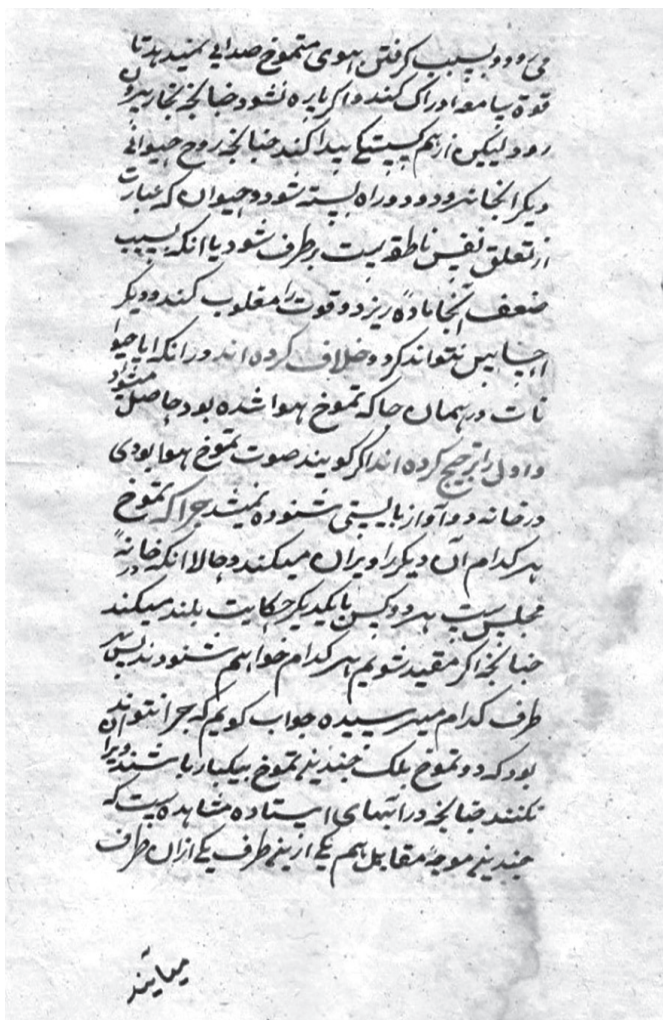 می رود و بسبب کرفتن هوی متموخ صدایی نمیدهد تا
قوة سامعه ادراک کند و اکر پاره نشود چنانچه بخار بیرون
رود لیکن از هم کسستکی پیدا کند چنانچه روح حیوانی
دیکر انجا نرود و دو راه بسته شود و حیوان که عبارت
از تعلق نفس ناطقه است برطرف شود یا انکه بسبب
ضعف انجا ماده ریزد و قوت را مغلوب کند و دیکر
احساس نتواند کرد و خلاف کرده اند در انکه ایا حیوا
نات در همان جا که تموخ هوا شده بود حاصل میشود
و اول را ترجیح کرده اند اکر کویند صوت تموخ هوا بودی
در خانه دو آواز بایستی شنوده نمیشد چرا که تموخ
هر کدام آن دیکر را ویران میکنند و حالا انکه در خانهٔ
مجلس است هر دو کس با یکدیکر حکایت بلند میکنند
چنانچه اکر مقید شویم هر کدام خواهیم شنود
طرف کدام میرسیده جواب کویم که چرا نتواند
بود که دو تموخ بلک چندین تموخ بیکبار باشند و ویران
نکنند چنانچه در ابهای ایستاده مشاهده است که
چندین موجهٔ مقابل هم یکی ازین طرف یکی از ان طرف
میایند